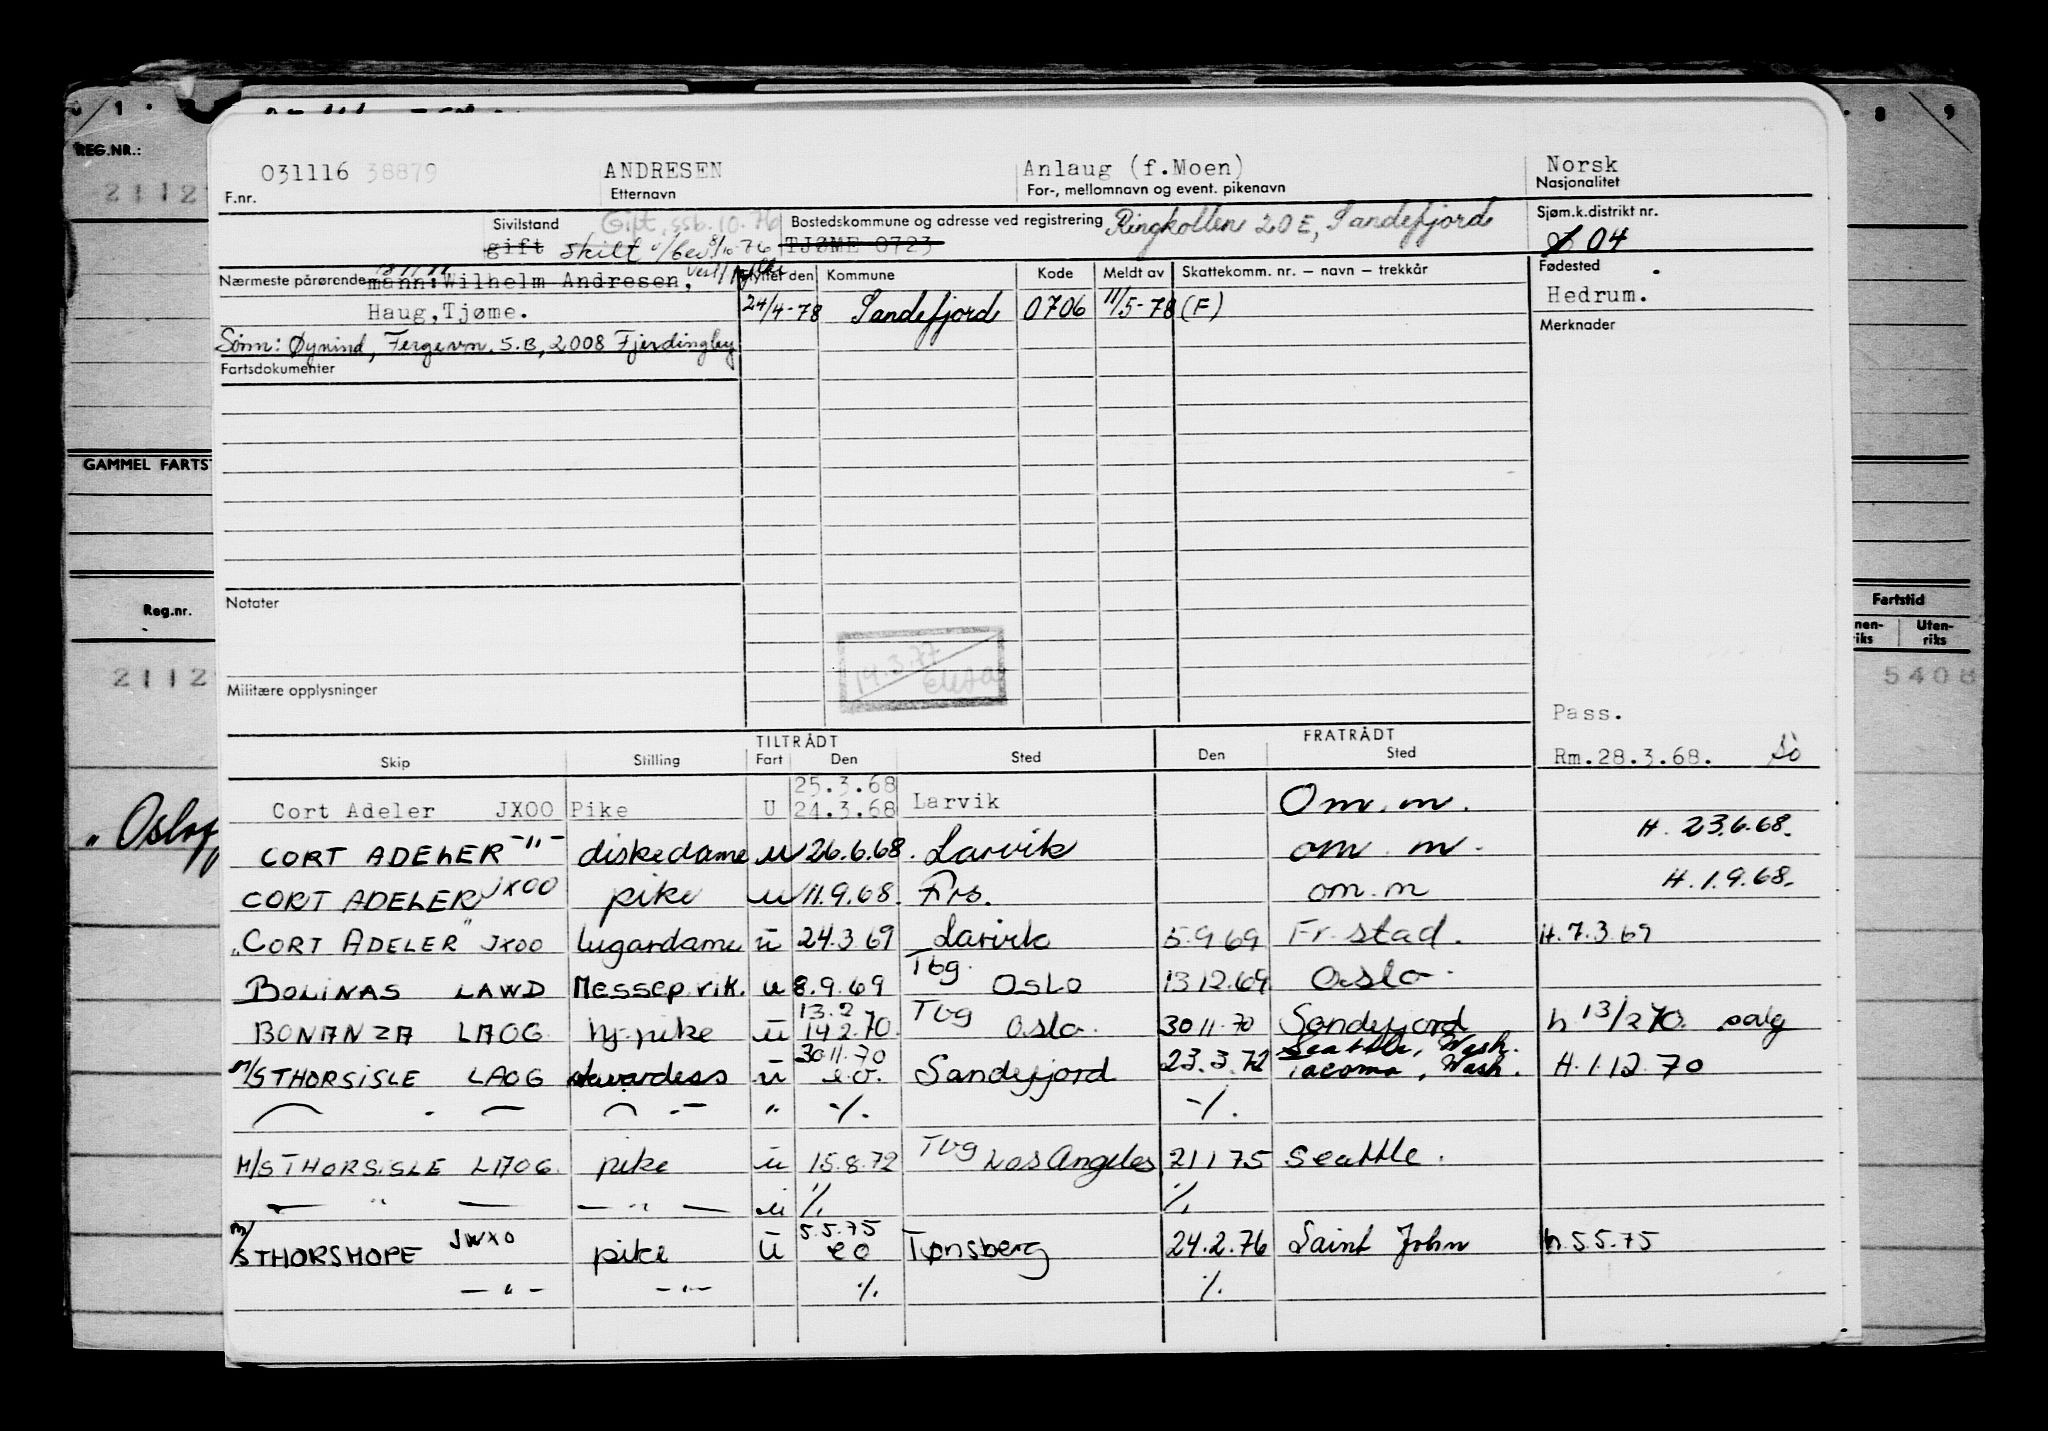 1 . 8 9
REG.NR.:
031116 38879 ANDRESEN Anlaug (f.Moen) Norsk
F.nr. Etternavn For-, mellomnavn og event. pikenavn Nasjonalitet
2112
Sivilstand Gift, ssb.10.76 Bostedskommune og adresse ved registrering Ringkollen 20E, Sandefjord Sjøm.k.distrikt nr.
gift skilt TJØME 0723 04
Nærmeste pårørende mann:Wilhelm Andresen, Flyttet den Kommune Kode Meldt av Skattekomm. nr. – navn – trekkår Fødested
Haug,Tjøme. 24/4-78 Sandefjord 0706 11/5-78 (F) Hedrum.
Merknader
Sønn: Øyvind, Fergevn. 5.B, 2008 Fjerdingby
Fartsdokumenter
GAMMEL FARTST
Notater
Reg.nr. Fartstid
nen-riks Uten-riks
14.3.77
2112 5408
Militære opplysninger
Pass.
TILTRÅDT FRATRÅDT
Skip Stilling Fart Den Sted Den Sted Rm.28.3.68.
25.3.68
Cort Adeler JXOO Pike U 24.3.68 Larvik Om. m.
"Oslof
H. 23.6.68.
CORT ADELER -"- diskedame u 26.6.68. Larvik om. m.
CORT ADELER JXOO pike u 11.9.68. Frs. om. m H. 1.9.68.
"CORT ADELER" JXOO lugardame u 24.3 69 Larvik 5.9 69 Fr. stad. H. 7.3.69
BOLINAS LAWD Messep.vik. u 8.9.69 Tbg. OSLO 13 12.69 Oslo.
13.2
BONANZA LAOG hj. pike u 14 2.70. Tbg Oslo. 30 11. 70 Sandefjord h 13/2 70. salg
30 11. 70 Seattle, Wash.
M/S THORSISLE LAOG stuardess u e.o. Sandefjord 23.3.72 Tacoma, Wash. H. 1.12.70
— . — — . — " -/. -/.
M/S THORSISLE LAOG. pike u 15.8.72 Tbg Los Angeles 21 1 75 Seattle.
— " — — " — u -/. -/.
5.5.75
M/S THORSHOPE JWXO pike u e o Tønsberg 24.2.76 Saint John h. 5.5.75
— " — — " — -/. -/.